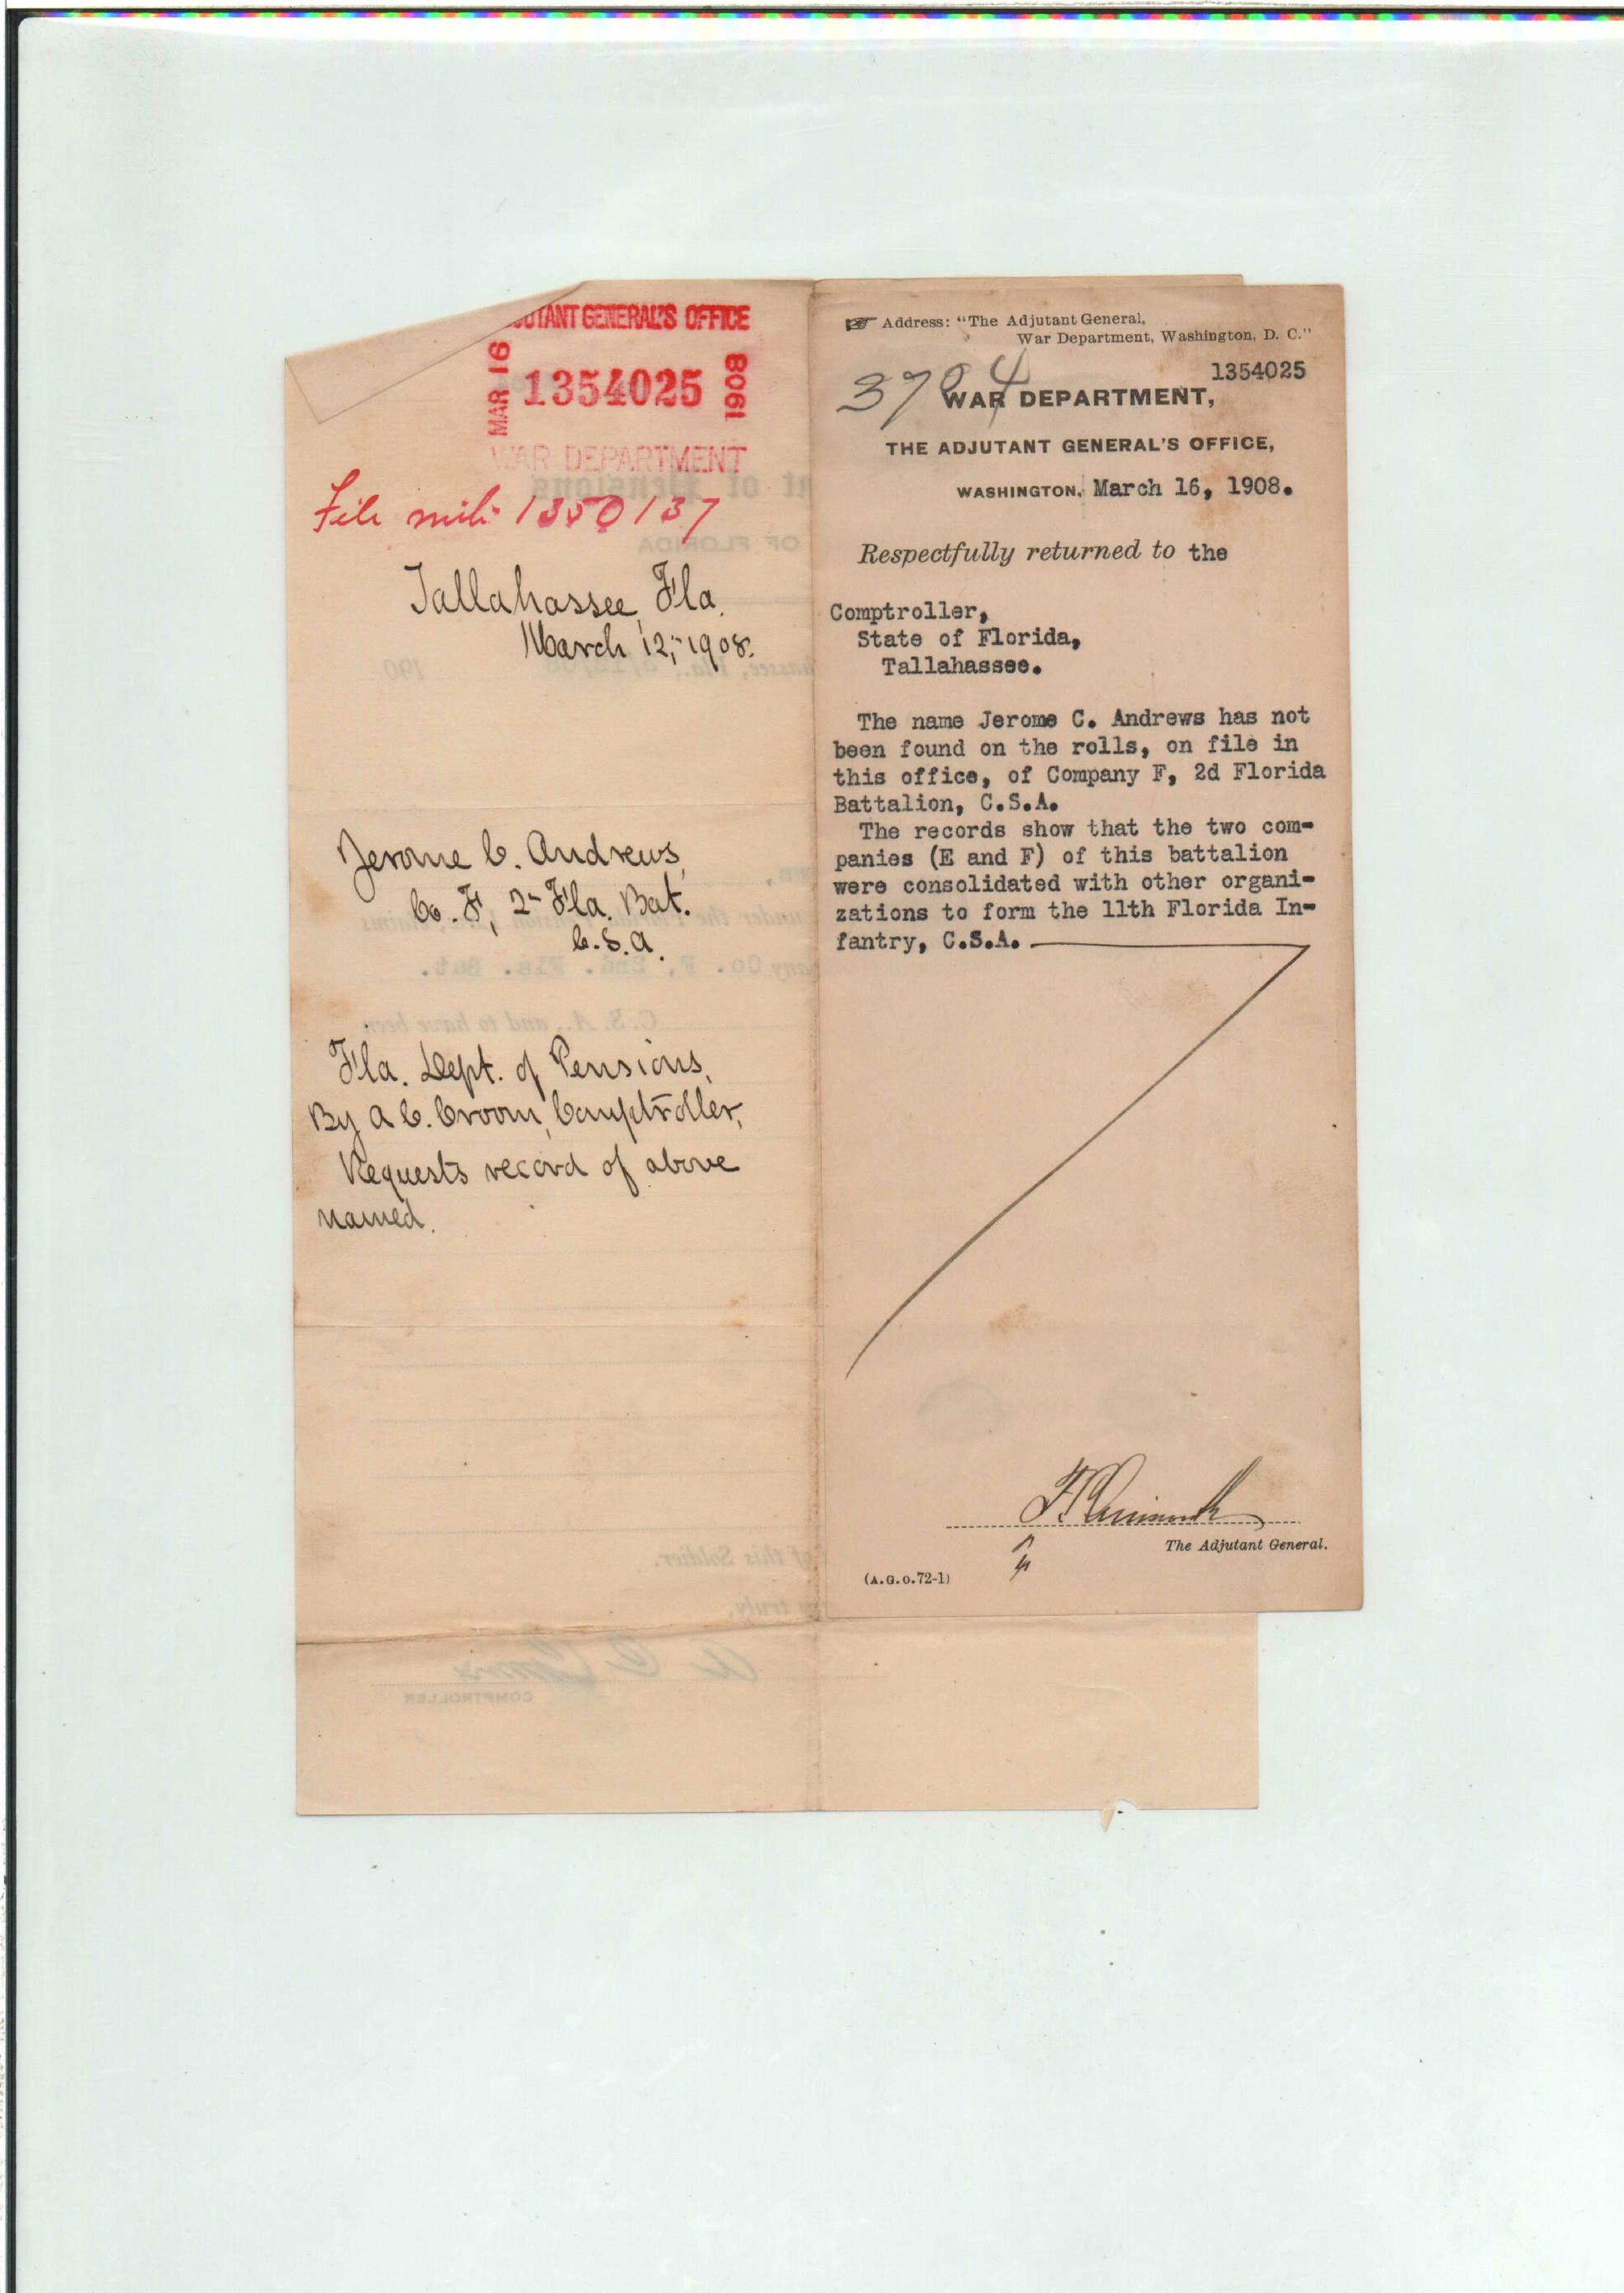 ADJUTANT GENERAL'S OFFICE
MAR 16 1354025 1908
WAR DEPARTMENT
File with 1350137
Tallahassee, Fla.
March 12, 1908.
Jerome C. Andrews,
Co. F, 2 Fla. Bat.
C.S.A.
Fla. Dept. of Pensions,
By A C. Croom, Comptroller,
Requests record of above
named.
Address: "The Adjutant General,
War Department, Washington, D. C."
1354025
3794
WAR DEPARTMENT,
THE ADJUTANT GENERAL'S OFFICE,
WASHINGTON, March 16, 1908.
Respectfully returned to the
Comptroller,
State of Florida,
Tallahassee.
The name Jerome C. Andrews has not
been found on the rolls, on file in
this office, of Company F, 2d Florida
Battalion, C.S.A.
The records show that the two com-
panies (E and F) of this battalion
were consolidated with other organi-
zations to form the 11th Florida In-
fantry, C.S.A.
The Adjutant General.
(A.G.O.72-1)